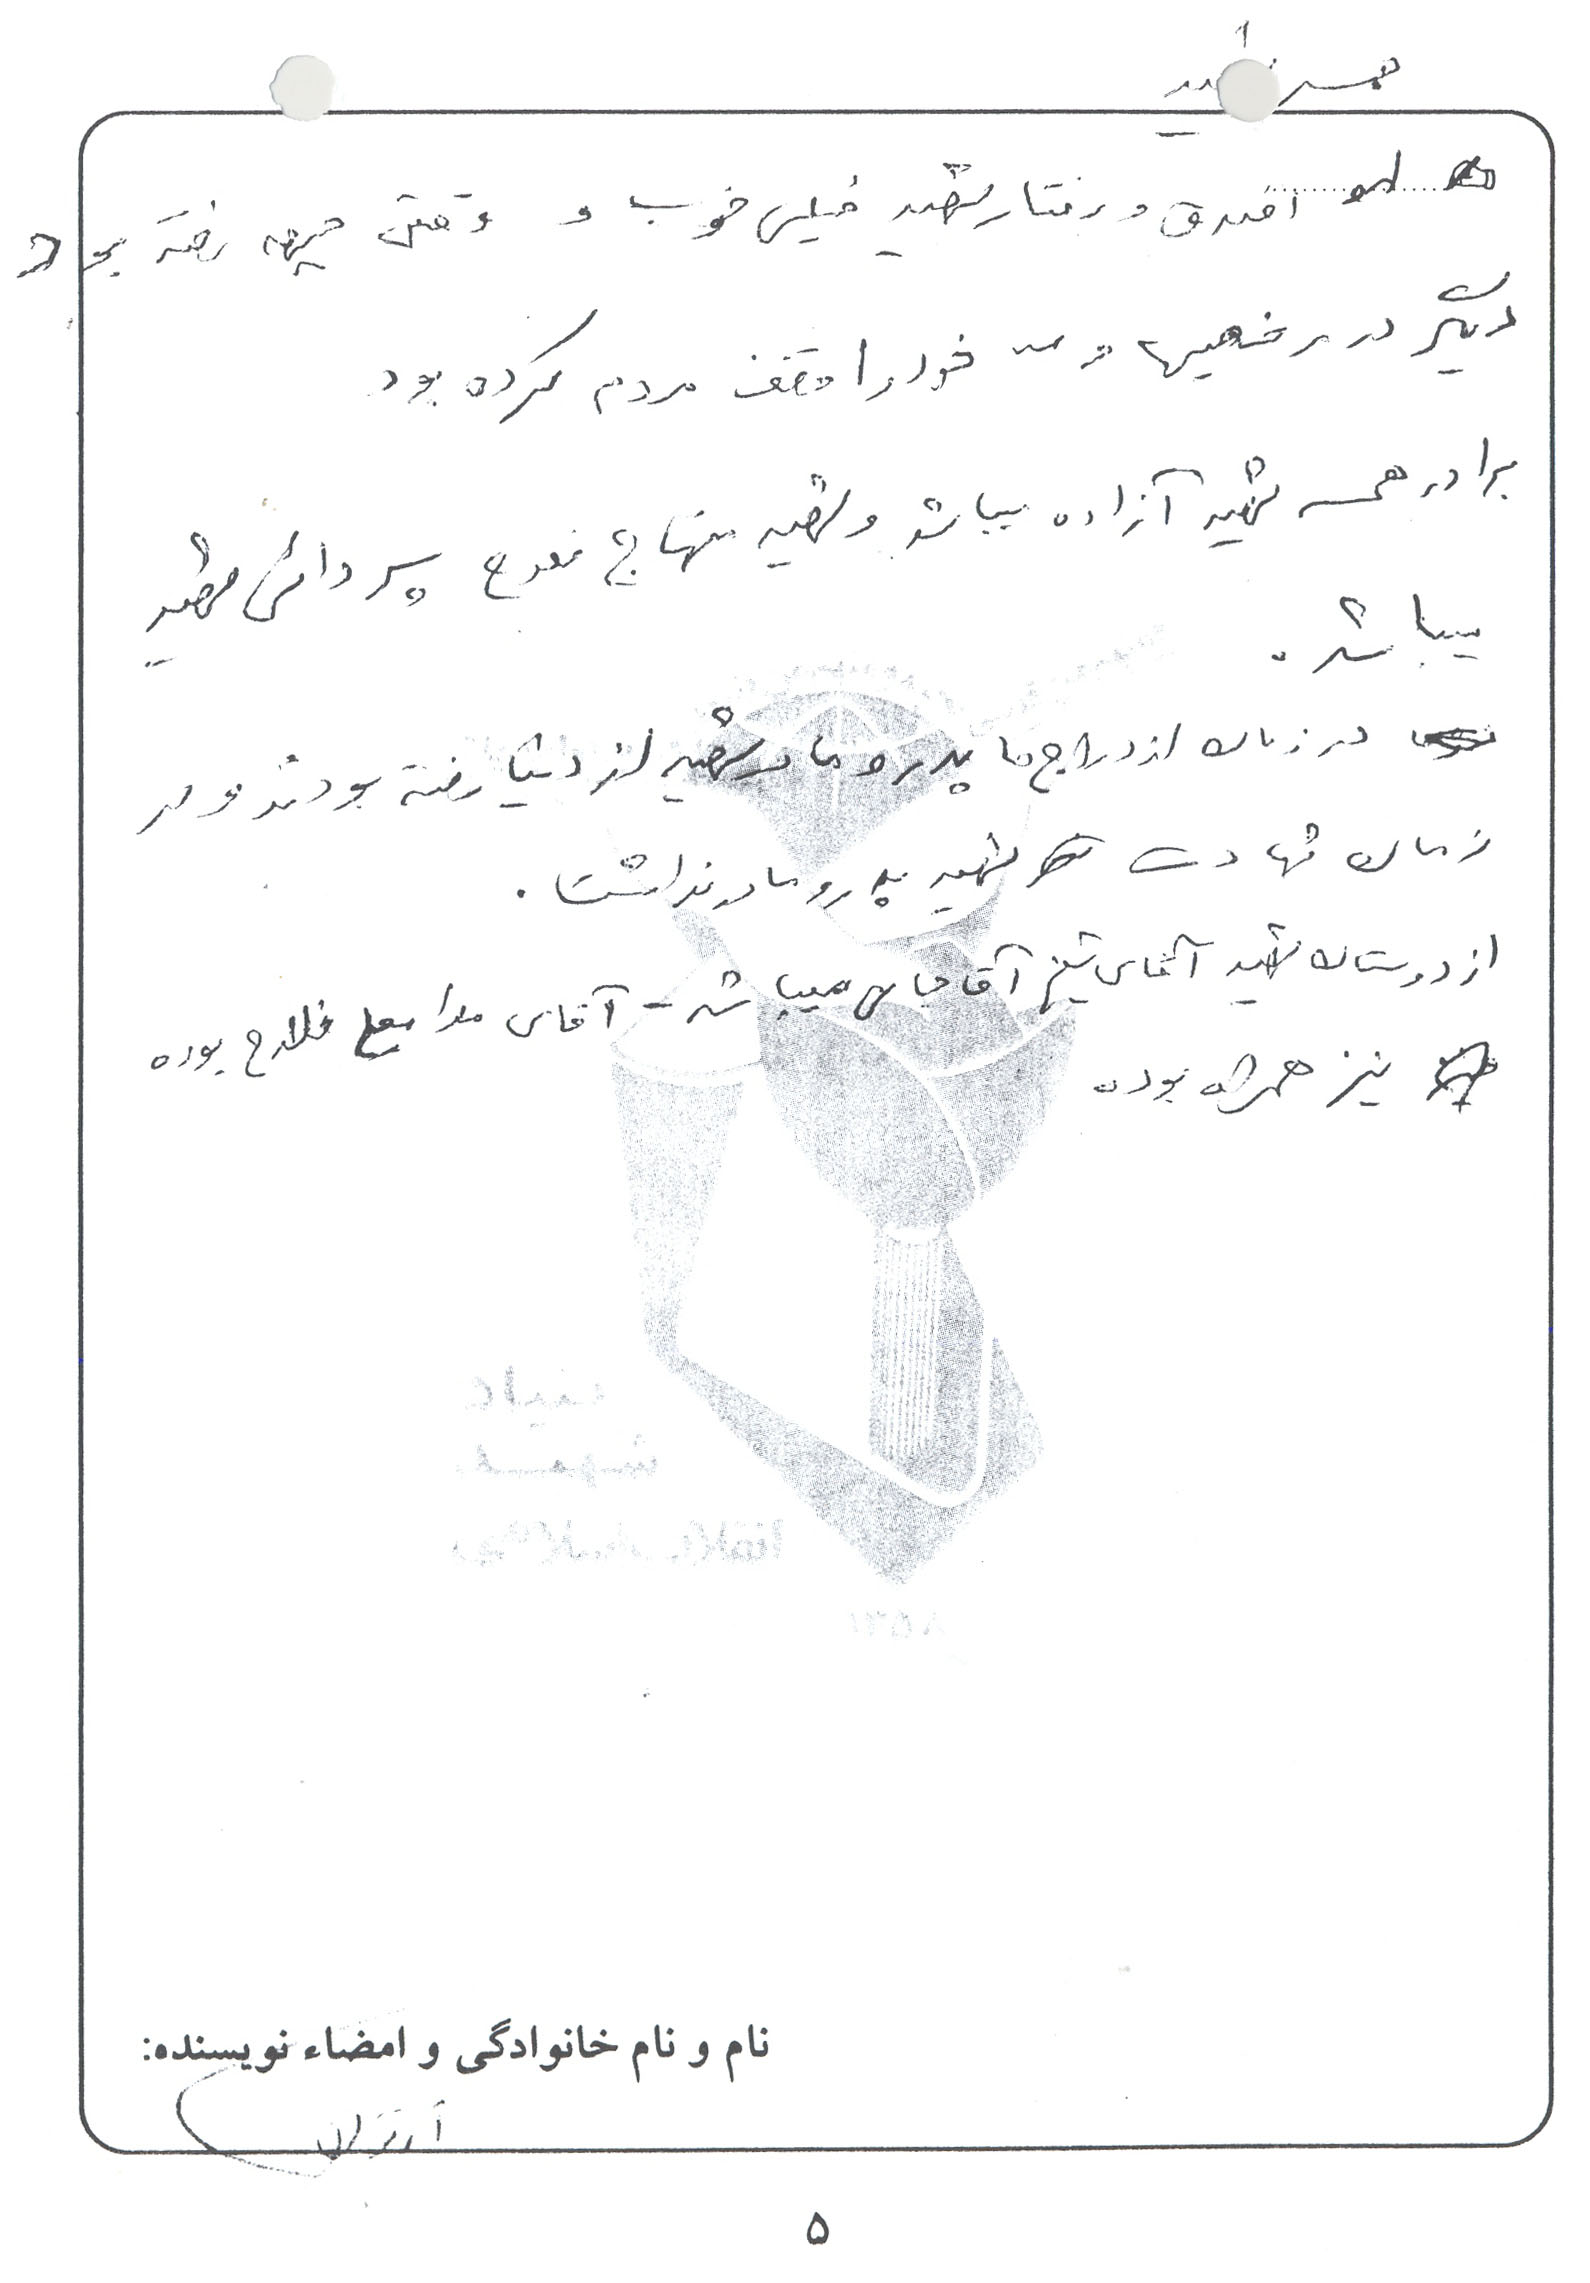 ۱
همسر شهید
اخلاق و رفتار شهید خیلی خوب و وقتی جبهه رفته بود
دیگر در مرخصیها خود را وقف مردم کرده بود
برادر همسر شهید آزاده میباشد و شهید منهاج فلاح پسر دائی شهید
میباشد .
در زمان ازدواج ما پدر و مادر شهید از دنیا رفته بودند و در
زمان شهادت شهید پدر و مادر نداشت .
از دوستان شهید آقای شیخ آقاجانی میباشد - آقای فلاح بوده
نیز همراه بوده
نام و نام خانوادگی و امضاء نویسنده:
۵